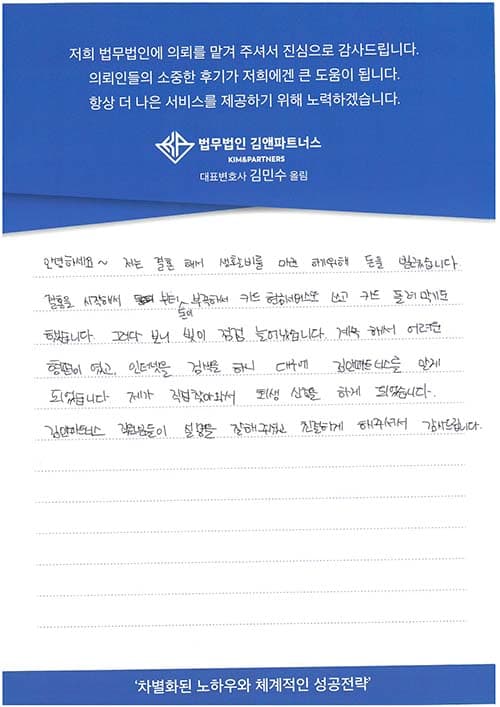 저희 법무법인에 의뢰를 맡겨 주셔서 진심으로 감사드립니다.
의뢰인들의 소중한 후기가 저희에겐 큰 도움이 됩니다.
항상 더 나은 서비스를 제공하기 위해 노력하겠습니다.
법무법인 김앤파트너스
KIM&PARTNERS
대표변호사 김민수 올림
안녕하세요~ 저는 결혼 해서 생활비를 마련 하기위해 돈을 빌렸습니다
결혼을 시작해서 부터 돈이 부족해서 카드 현금서비스도 쓰고 카드 돌려막기도
했습니다. 그러다 보니 빚이 점점 늘어났습니다. 계속 해서 어려운
형편이 였고, 인터넷을 검색을 하니 김앤파트너스를 알게
되었습니다 제가 직접찾아와서 회생 신청을 하게 되었습니다.
김앤파트너스 직원분들이 설명을 잘해주셨고 친절하게 해주셔서 감사드립니다.
'차별화된 노하우와 체계적인 성공전략'